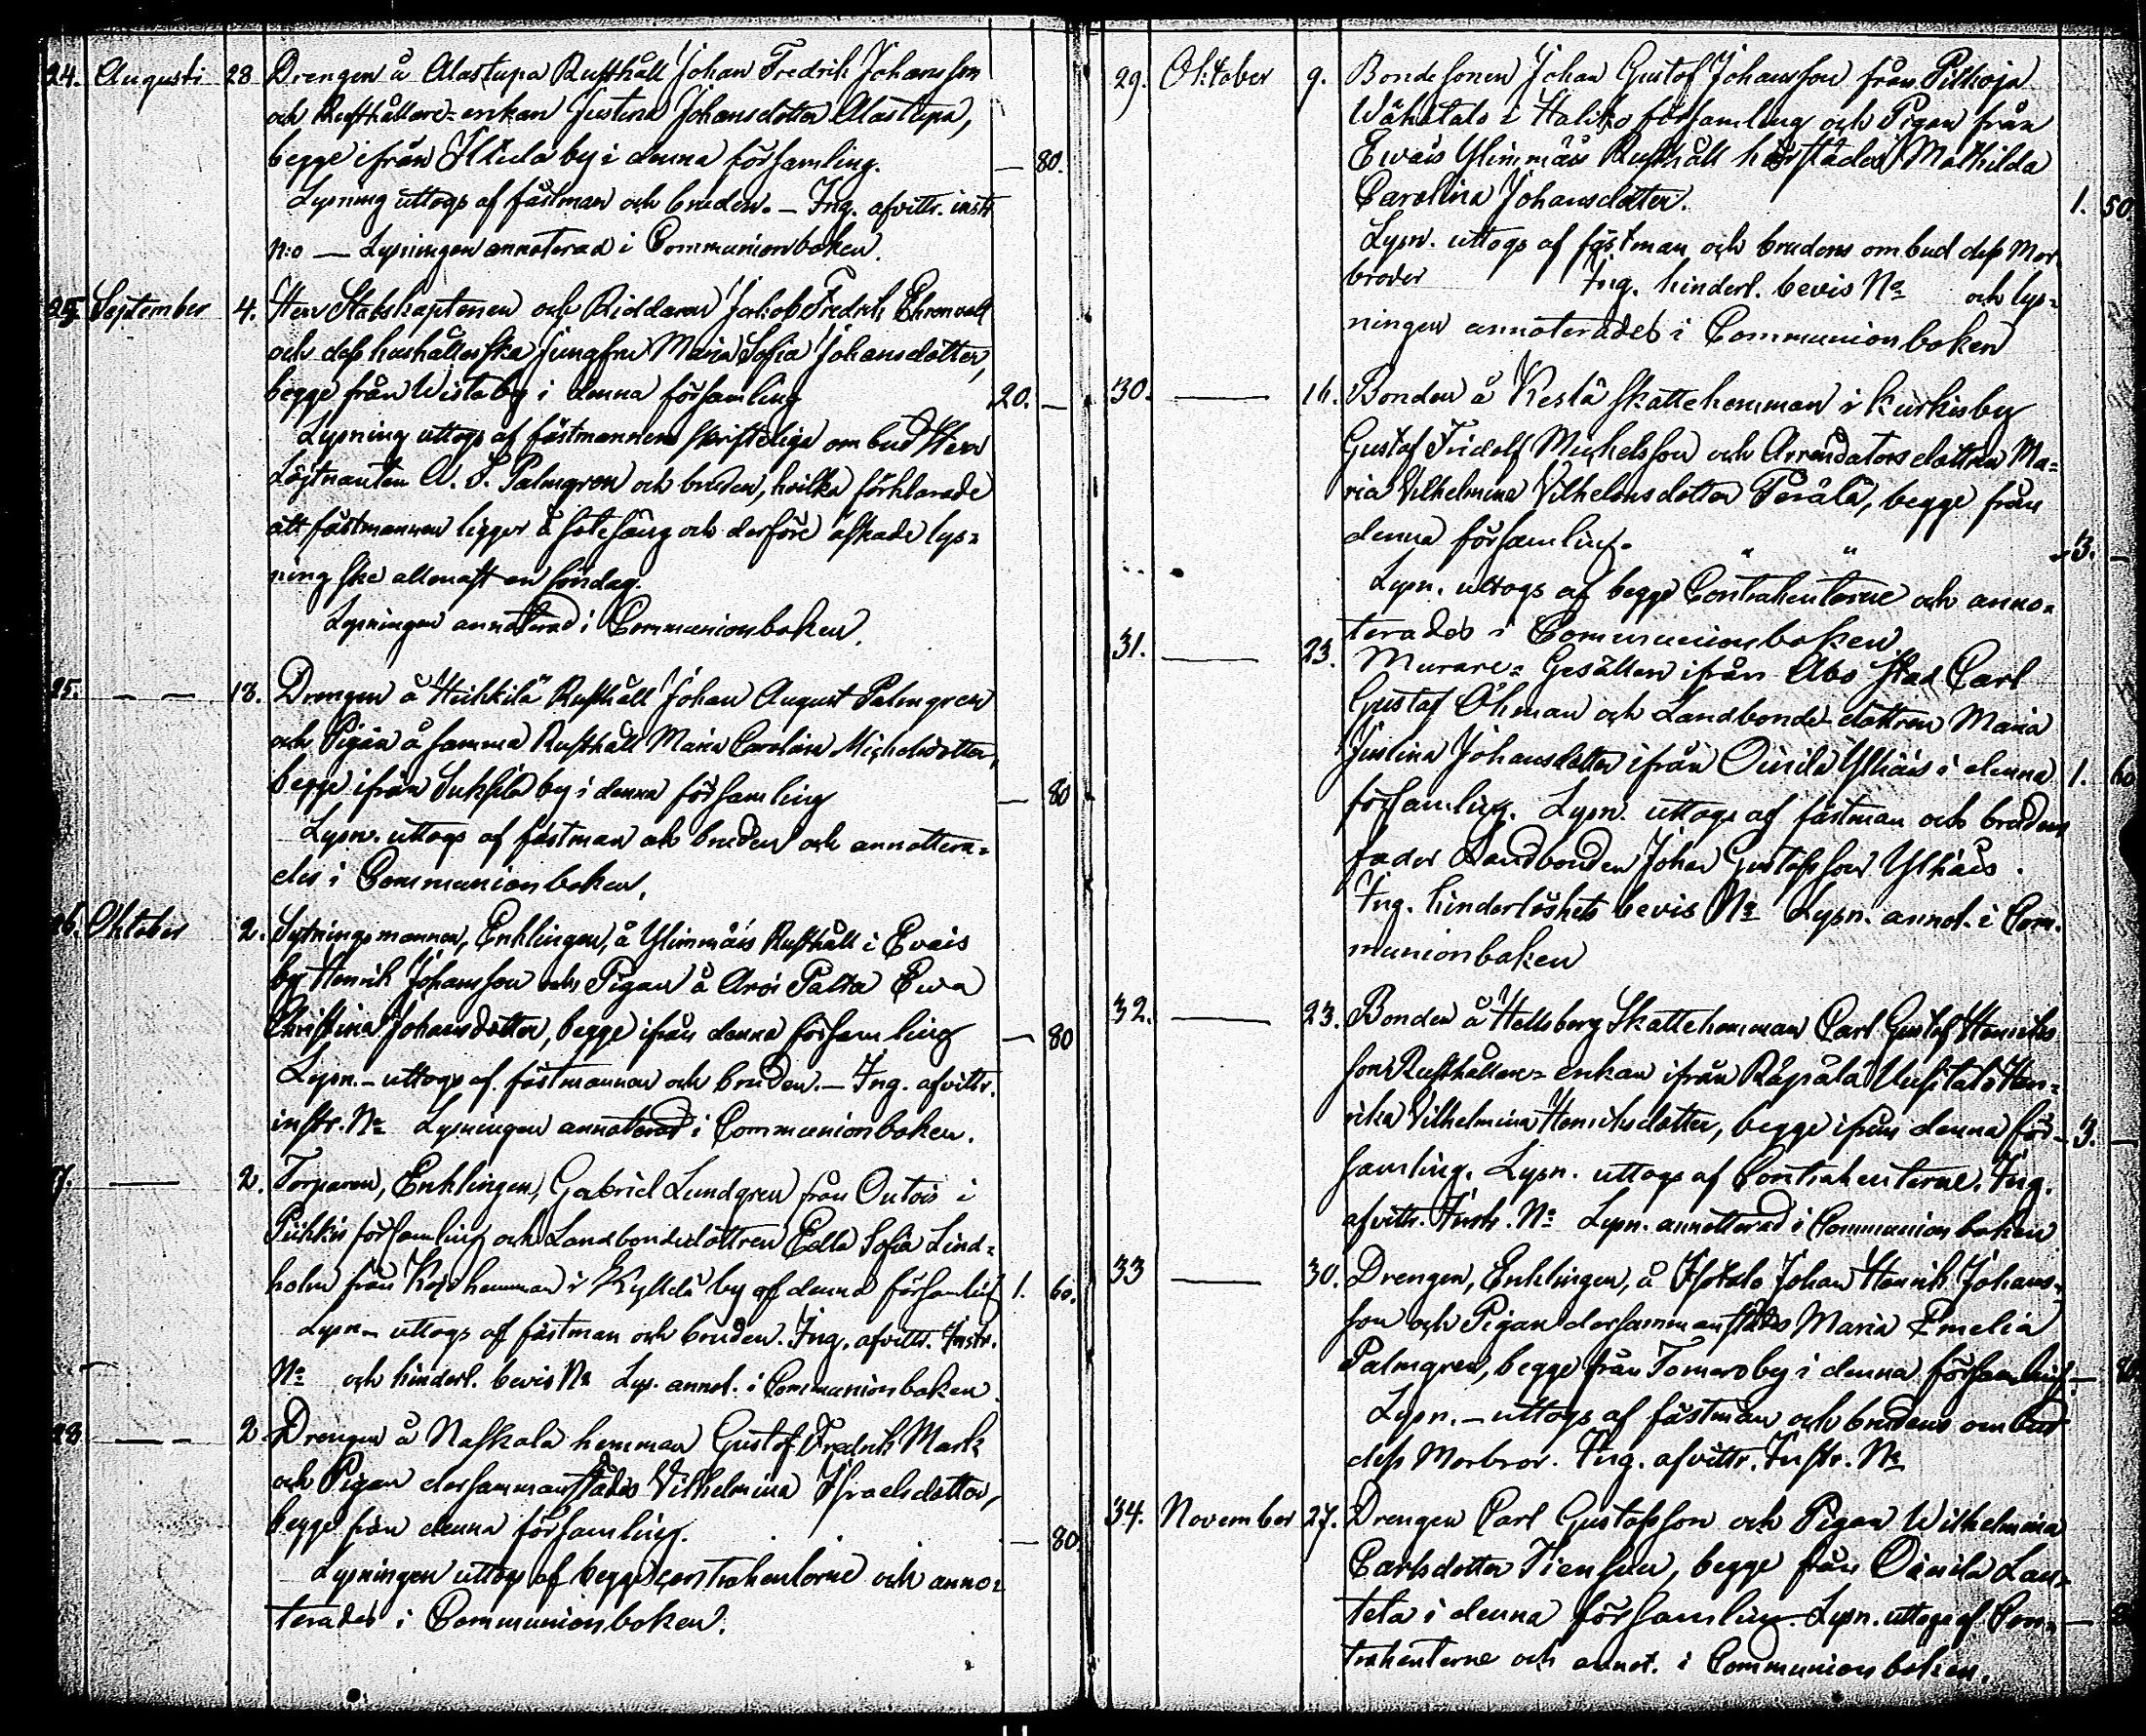 24. Augusti 28 Drengen å Alastupa Rusthåll Johan Fredrik Johansson
och Rusthållare-enkan Justina Johansdotter Alastupa,
begge ifrån by i denna församling. — 80.
Lysning uttogs af fästman och bruden. — Ing. afvittr. instr
N:o — Lysningen annoterad i Communionboken.
25. September 4. Herr Stabskaptenen och Riddaren Jakob Fredrik Ehrenvall
och dess hushållerska Jungfru Maria Sofia Johansdotter,
begge från Wista by i denna församling 20. —
Lysning uttogs af fästmannens skriftelige ombud Herr
Löjtnanten A. S. Palmgren och bruden, hvilka förklarade
att fästmannen ligger å sotesäng och derföre äskade lys=
ning ske allenast en söndag.
Lysningen annoterad i Communionboken.
25. — — 18. Drengen å Heikkilä Rusthåll Johan August Palmgren
och Pigan å samma Rusthåll Maria Carolina Michelsdotter,
begge ifrån by i denna församling — 80
Lysn. uttogs af fästman och bruden och annottera=
des i Communionboken.
26. Oktober 2. Sytningsmannen, Enklingen, å Ylimmäis Rusthåll i Evais
by Henrik Johansson och Pigan å Arois Palta Ewa
Christina Johansdotter, begge ifrån denna församling — 80
Lysn. — uttogs af fästmannen och bruden. — Ing. afvittr.
instr. No Lysningen annoterad i Communionboken.
27. — 2. Torparen, Enklingen, Gabriel Lundgren från Outois i
Piikkis församling och Landbondedottren Edla Sofia Lind=
holm från hemman i by af denna församling 1. 60.
Lysn — uttogs af fästman och bruden. Ing. afvittr. Instr.
No och hinderl. bevis No Lys. annot. i Communionboken.
28 — — 2 Drengen å Naskala hemman Gustof Fredrik Mark
och Pigan dersammanstädes Vilhelmina Israelsdotter,
begge från denna församling. — 80.
Lysningen uttogs af begge contrahenterne och anno=
terades i Communionboken.
29. Oktober 9. Bondesonen Johan Gustof Johansson från Pilkoja
Wähätalo i Haliko församling och Pigan från
Evais Ylimmäis Rusthåll härstädes Mathilda
Carolina Johansdotter. 1. 50
Lysn. uttogs af fästman och brudens ombud dess Mor
broder Ing. hinderl. bevis No och lys=
ningen annoterades i Communionboken
30. — 16. Bonden å Keslä skattehemman i Kurkis by
Gustaf Fridolf Michelsson och Arrendators dottren Ma=
ria Vilhelmina Vilhelmsdotter Perälä, begge från
denna församling. " " 3. —
Lysn. uttogs af begge Contrahenterne och anno=
terades i Communionboken.
31. — 23. Murare= Gesällen ifrån Åbo Stad Carl
Gustaf Öhman och Landbonde-dottren Maria
Justina Johansdotter ifrån Oinila Ylhäis i denna 1. 60
församling. Lysn. uttogs af fästman och brudens
fader Landbonden Johan Gustafsson Ylhäis.
Ing. hinderlöshets bevis No Lysn. annot. i Com=
munionboken
32. — 23. Bonden å Hellsberg Skattehemman Carl Gustaf Henriks
son Rusthållare=enkan ifrån Räpälä Uusitalo Hen=
rika Vilhelmina Henriksdotter, begge ifrån denna för= 3. —
samling. Lysn. uttogs af Contrahenterne. Ing.
afvittr. Instr. No Lysn. annotterad i Communionboken
33 — 30. Drengen, Enklingen, å Isotalo Johan Henrik Johans=
son och Pigan dersammanstädes Maria Emelia
Palmgren, begge från Tomero by i denna församling. — 80
Lysn. — uttogs af fästman och brudens ombud
dess Morbror. Ing. afvittr. Instr. No
34. November 27. Drengen Carl Gustafsson och Pigan Wilhelmina
Carlsdotter, begge från Oinila Lau=
tela i denna församling. Lysn. uttogs af Con=
trahenterne och annot. i Communionboken.